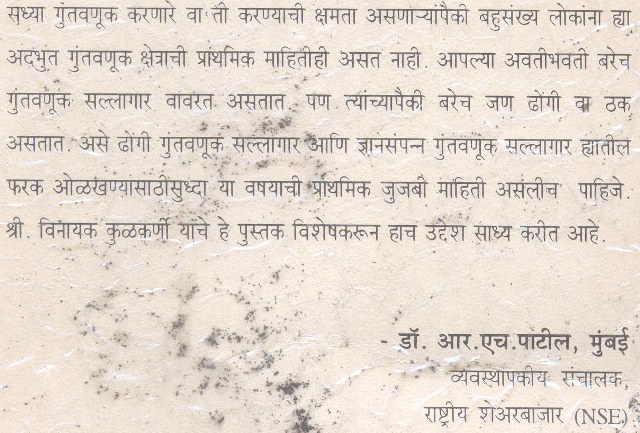 सध्या गुंतवणूक करणारे वा ती करण्याची क्षमता असणाऱ्यांपैकी बहुसंख्य लोकांना ह्या
अदभुत गुंतवणूक क्षेत्राची प्रांथमिक माहितीही असत नाही. आपल्या अवतीभवती बरेच
गुंतवणूक सल्लागार वावरत असतात. पण त्यांच्यापैकी बरेच जण ढोंगी वा ठक
असतात. असे ढोंगी गुंतवणूक सल्लागार आणि ज्ञानसंपन्न गुंतवणूक सल्लागार ह्यातील
फरक ओळखण्यासाठीसुध्दा या वषयाची प्राथमिक जुजबी माहिती असलीच पाहिजे.
श्री. विनायक कुळकर्णी यांचे हे पुस्तक विशेषकरून हाच उद्देश साध्य करीत आहे.
- डॉ. आर.एच.पाटील, मुंबई
व्यवस्थापकीय संचालक,
राष्ट्रीय शेअरबाजार (NSE)